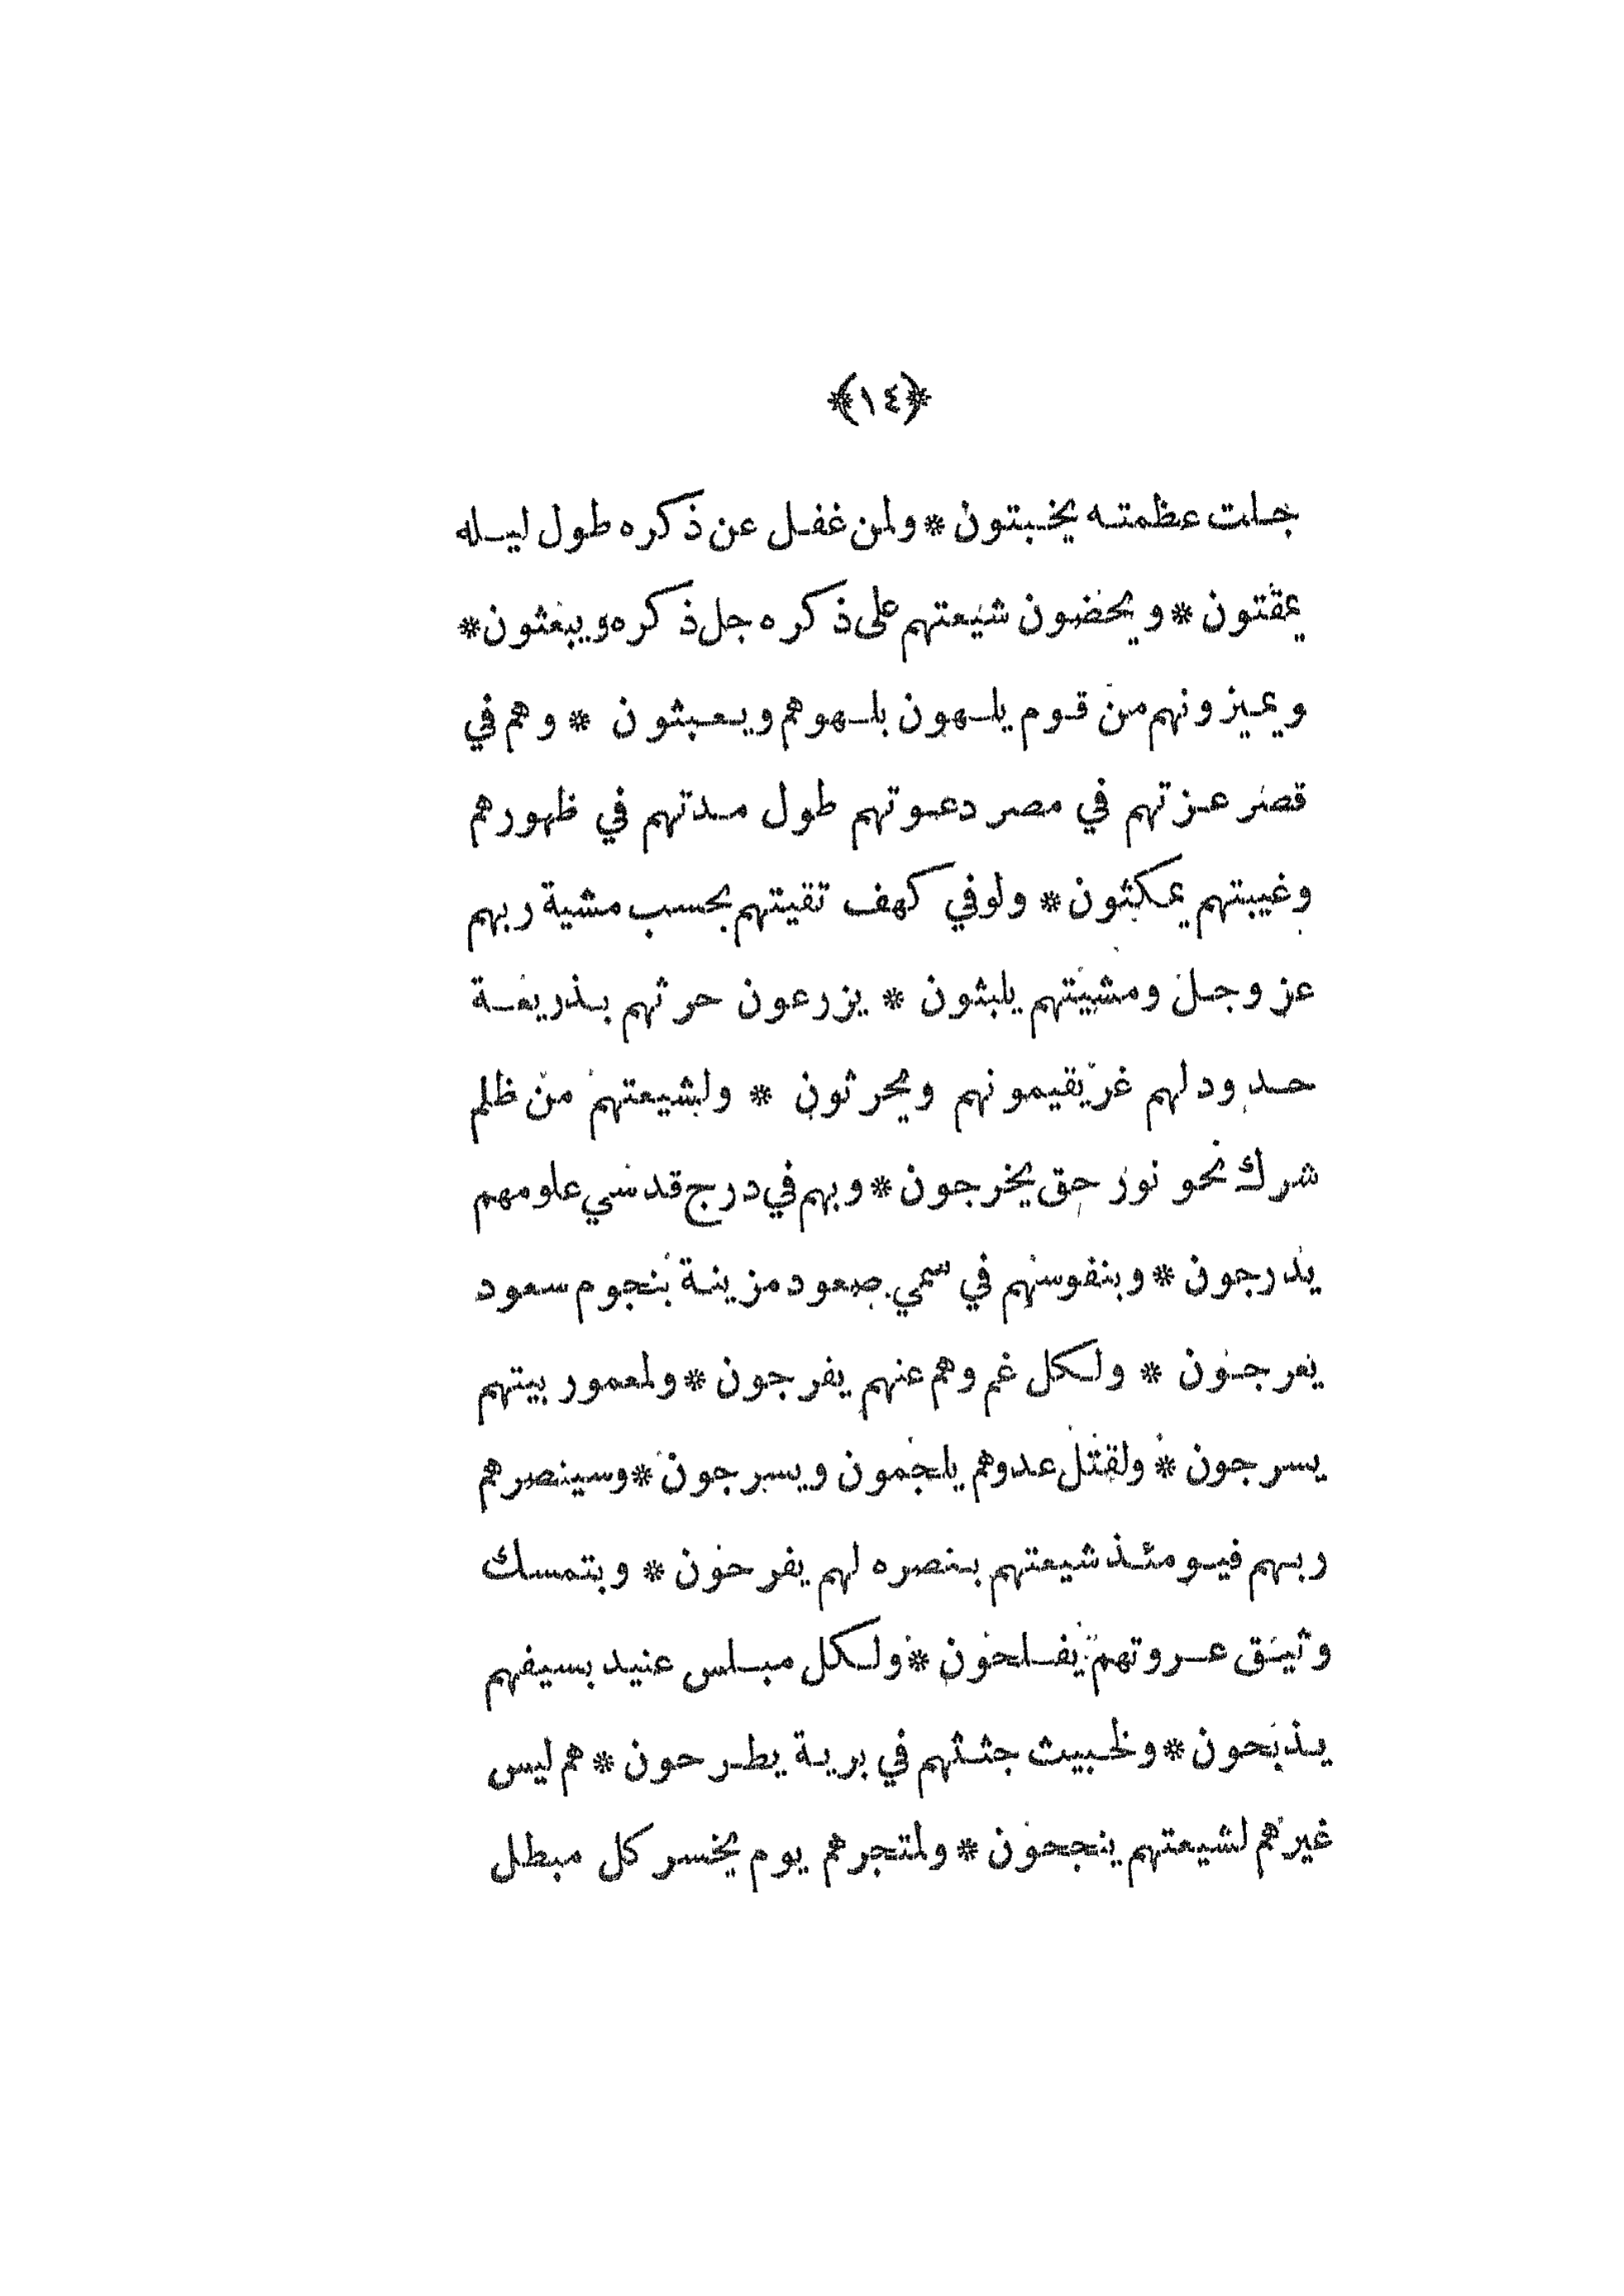 ﴿١٤﴾
جلت عظمته يخبتون * ولمن غفل عن ذكره طول ليله
يمقتون * ويحضون شيعتهم على ذكره جل ذكره ويبعثون *
ويميزونهم من قوم يلهون بلهوهم ويعبثون * وهم في
قصر عزتهم في مصر دعوتهم طول مدتهم في ظهورهم
وغيبتهم يمكثون * ولو في كهف تقيتهم بحسب مشية ربهم
عز وجل ومشيتهم يلبثون * يزرعون حرثهم بذريعة
حدود لهم غر يقيمونهم ويحرثون * ولشيعتهم من ظلم
شرك نحو نور حق يخرجون * وبهم في درج قدسي علومهم
يدرجون * وبنفوسهم في سمي صعود مزينة بنجوم سعود
يعرجون * ولكل غم وهم عنهم يفرجون * ولمعمور بيتهم
يسرجون * ولقتل عدوهم يلجمون ويسرجون * وسينصرهم
ربهم فيومئذ شيعتهم بنصره لهم يفرحون * وبتمسك
وثيق عروتهم يفلحون * ولكل مبلس عنيد بسيفهم
يذبحون * وخبيث جثثهم في برية يطرحون * هم ليس
غيرهم لشيعتهم ينجحون * ولمتجرهم يوم يخسر كل مبطل